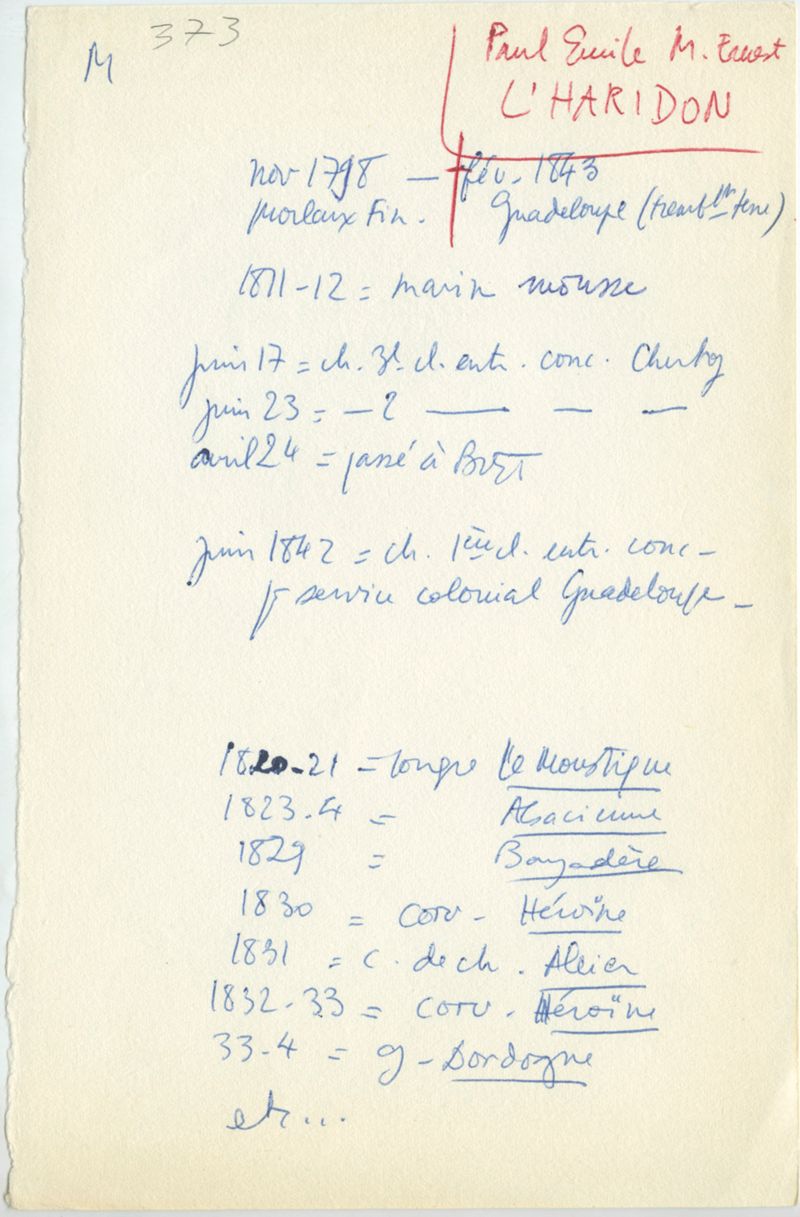 M 373
Paul Emile M. Ernest
L'HARIDON
nov 1798 — fév. 1843
Morlaix Fin. Guadeloupe (trembt terre)
1811-12 = marin mousse
juin 17 = ch. 3e cl. entr. conc. Cherbg
juin 23 = — 2 — — —
avril 24 = passé à Brest
juin 1842 = ch. 1ère cl. entr. conc -
pr service colonial Guadeloupe -
1820-21 = lougre le Moustique
1823.4 = Alsacienne
1829 = Bayadère
1830 = corv - Héroïne
1831 = c. de ch.
1832-33 = corv. Héroïne
33-4 = g - Dordogne
etc...